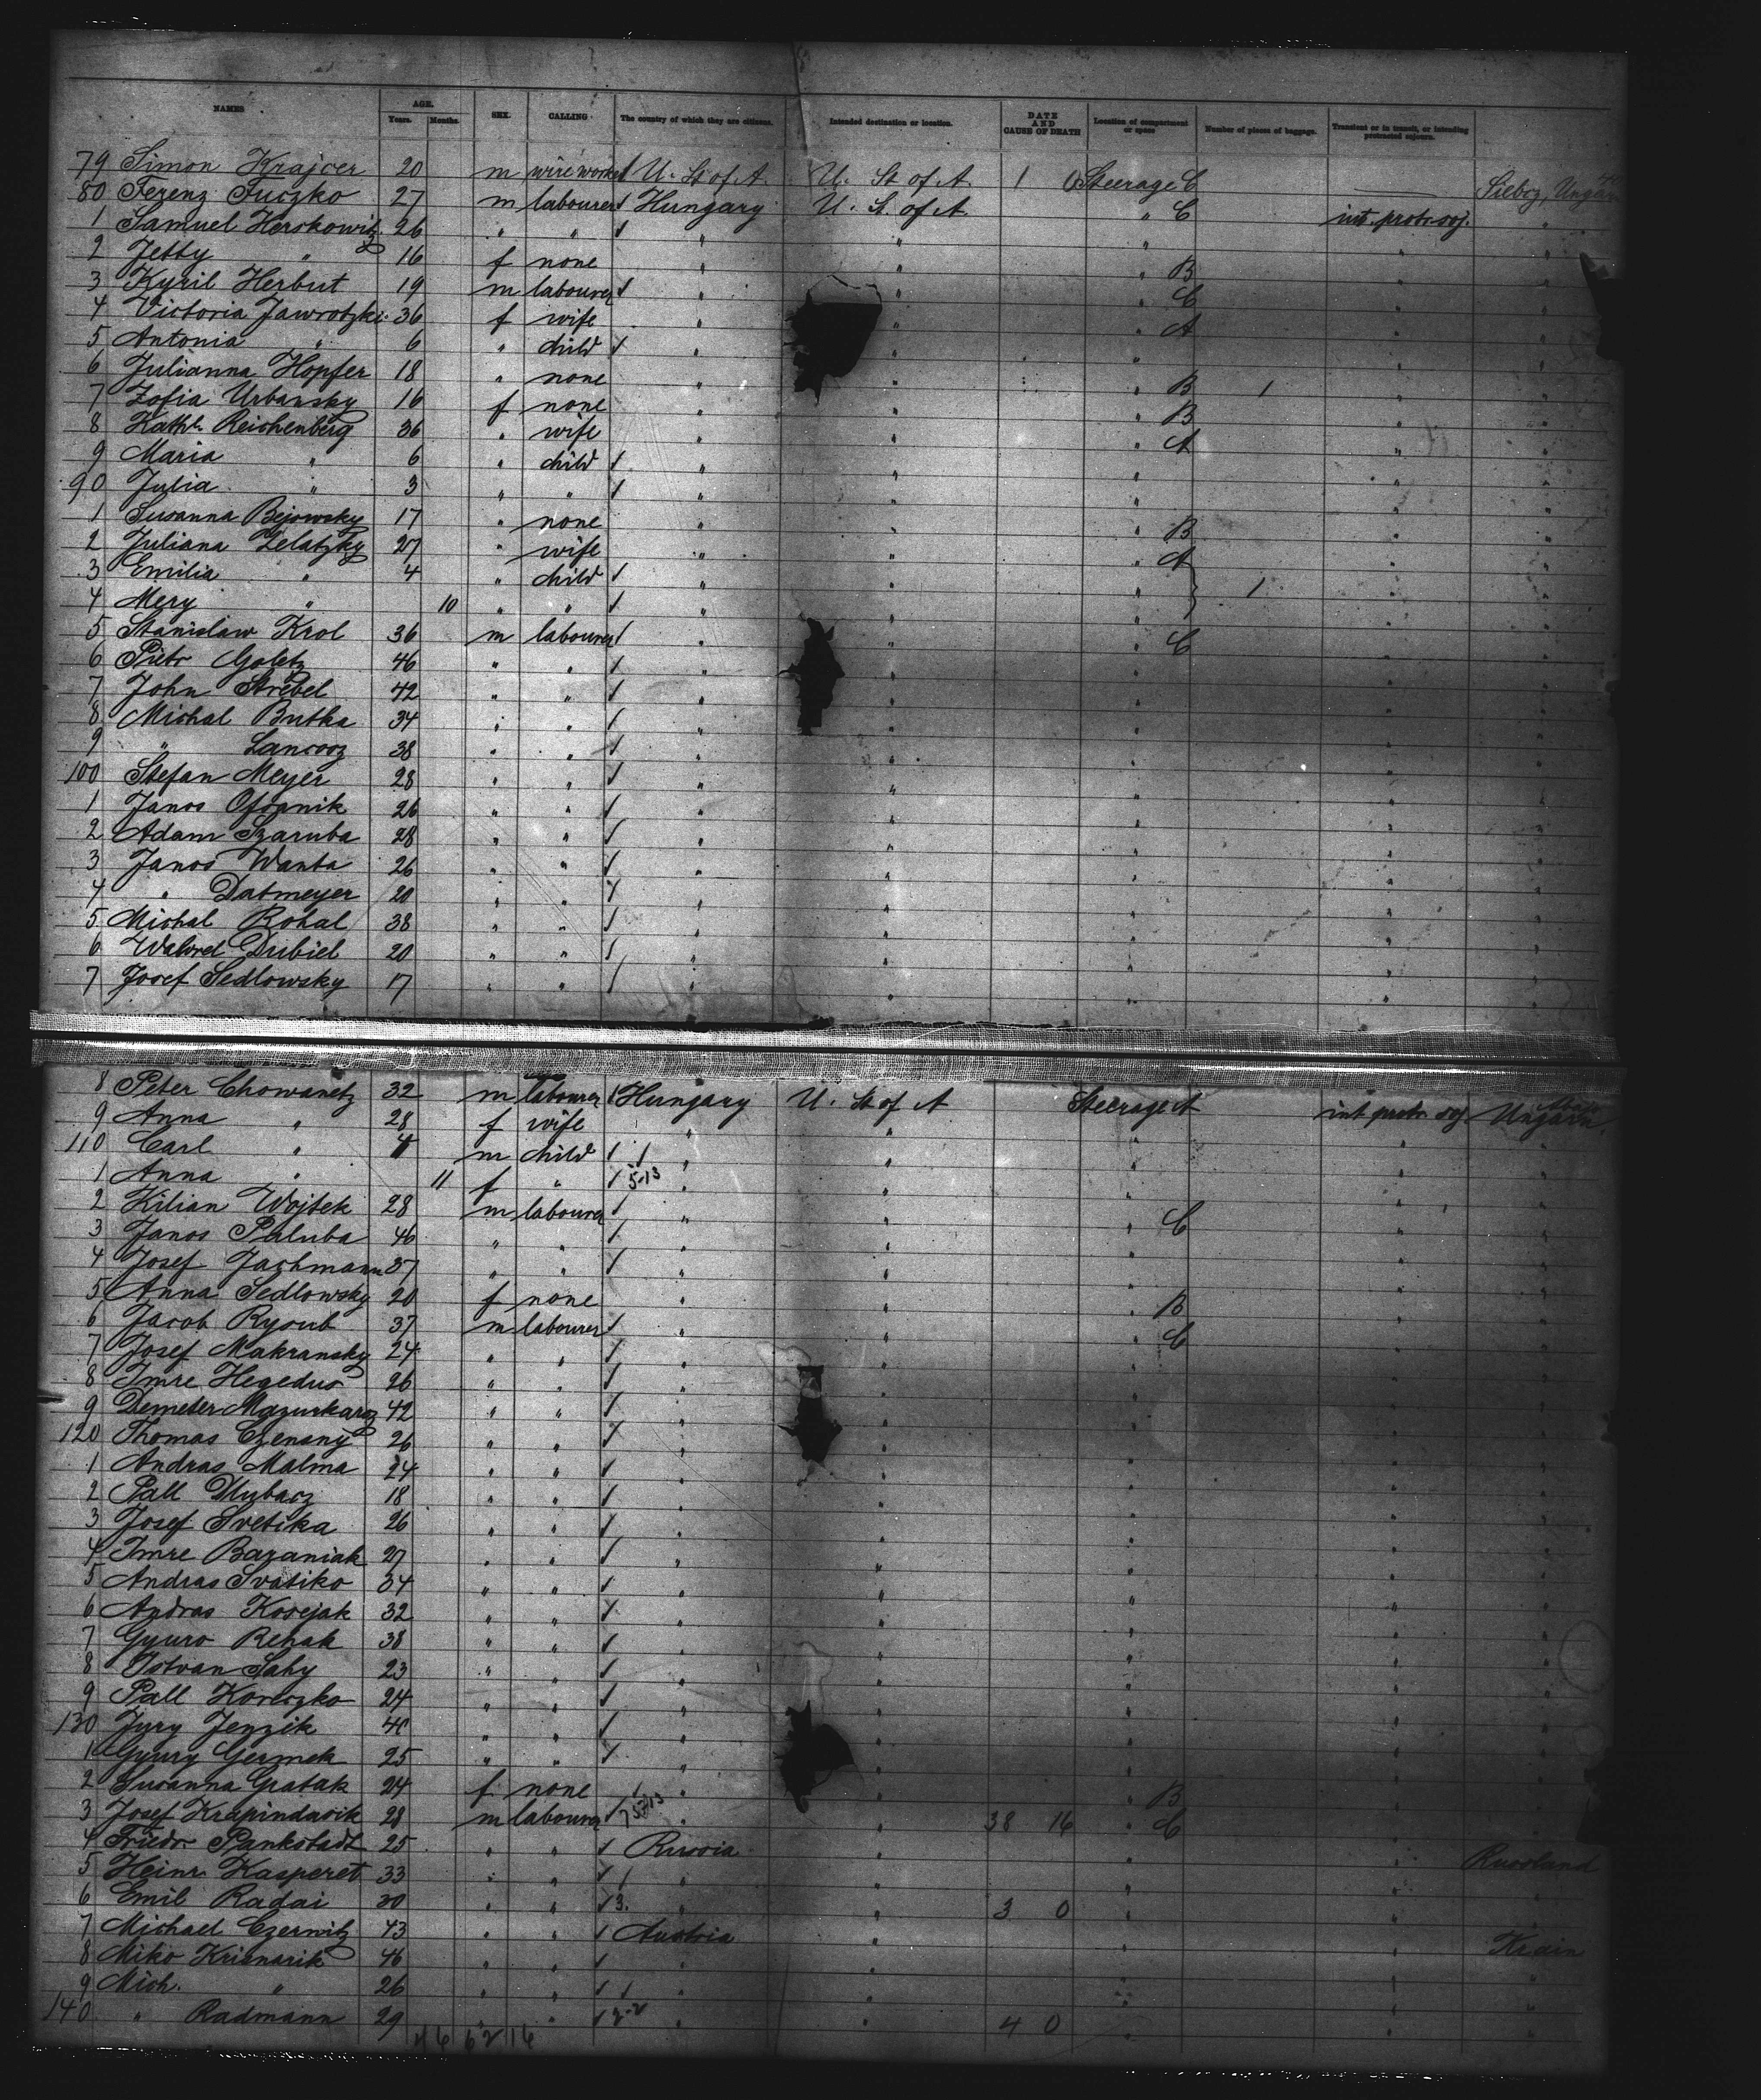 NAMES AGE. Years. Months. SEX. CALLING The country of which they are citizens. Intended destination or location. DATE AND CAUSE OF DEATH Location of compartment or space Number of pieces of baggage. Transient or in transit, or intending protracted sojourn.
79 Simon Krajcer 20 m wireworker U. St of A. U. St of A. 1 0 Steerage C
80 Ferenz Fuczko 27 m labourer Hungary U. St. of A. " C int. protr. soj. Ungarn
1 Samuel Herskowitz 26 " " " " " " "
2 Jetty " 16 f none " " " B " "
3 Kyril Herbut 19 m labourer " " " C " "
4 Victoria Jawrotzki 36 f wife " " " A " "
5 Antonia " 6 " child " " " " "
6 Julianna Hopfer 18 " none " " " B 1 " "
7 Zofia Urbansky 16 f none " " " B " "
8 Kath. Reichenberg 36 " wife " " " A " "
9 Maria " 6 " child " " " " "
90 Julia " 3 " " " " " " "
1 Susanna Bejowsky 17 " none " " " B " "
2 Juliana Zelatzky 27 " wife " " " A " "
3 Emilia " 4 " child " " " 1 " "
4 Mery " 10 " " " " " " "
5 Stanislaw Krol 36 m labourer " " C " "
6 Pietr Goletz 46 " " " " " "
7 John Strebel 42 " " " " " "
8 Michal Butka 34 " " " " " "
9 " Lancocz 38 " " " " " " "
100 Stefan Meyer 28 " " " " " " "
1 Janos Ofsanik 26 " " " " " " "
2 Adam Szaruba 28 " " " " " " "
3 Janos Wanta 26 " " " " " " "
4 " Datmeyer 20 " " " " " " "
5 Michal Rohal 38 " " " " " " "
6 Dubiel 20 " " " " " " "
7 Josef Sedlowsky 17 " " " " " "
8 Peter Chowanetz 32 m labourer Hungary U. St of A Steerage A int protr. soj Ungarn
9 Anna " 28 f wife " " " " "
110 Carl " 4 m child 1 " " " " "
1 Anna " 11 f " 5-13 " " " " "
2 Kilian Wojtek 28 m labourer " " " C " "
3 Janos Paluba 46 " " " " " " "
4 Josef Jachmann 37 " " " " " " "
5 Anna Sedlowsky 20 f none " " " B " "
6 Jacob Ryoub 37 m labourer " " " C " "
7 Josef Makransky 24 " " " " " " "
8 Imre Hegedus 26 " " " " " " "
9 Demeter 42 " " " " " " "
120 Thomas Czensny 26 " " " " " " "
1 Andras Malma 24 " " " " " " "
2 Pall 18 " " " " " " "
3 Josef Svetika 26 " " " " " " "
4 Imre Bazaniak 27 " " " " " " "
5 Andras Svatiko 34 " " " " " " "
6 Andras Kosejak 32 " " " " " " "
7 Gyuro Rehak 38 " " " " " " "
8 Istvan Sahy 23 " " " " " " "
9 Pall Koreczko 24 " " " " " " "
130 Jury Jenzik 40 " " " " " " "
1 Gyury Germek 25 " " " " " " "
2 Susanna Gratak 24 f none " " " B " "
3 Josef Krapindavik 28 m labourer " " 38 16 " C " "
4 Friedr. Pankstadt 25 " " Russia " " " Russland
5 Heinr. Kasperet 33 " " 1 " " " " "
6 Emil Radai 30 " " 3. " 3 0 " " "
7 Michael Czerwitz 43 " " Austria " " " Krain
8 Miko Krisnarik 46 " " " " " " "
9 Mich. " 26 " " 1 " " " "
140 " Radmann 29 " " " " 4 0 " " "